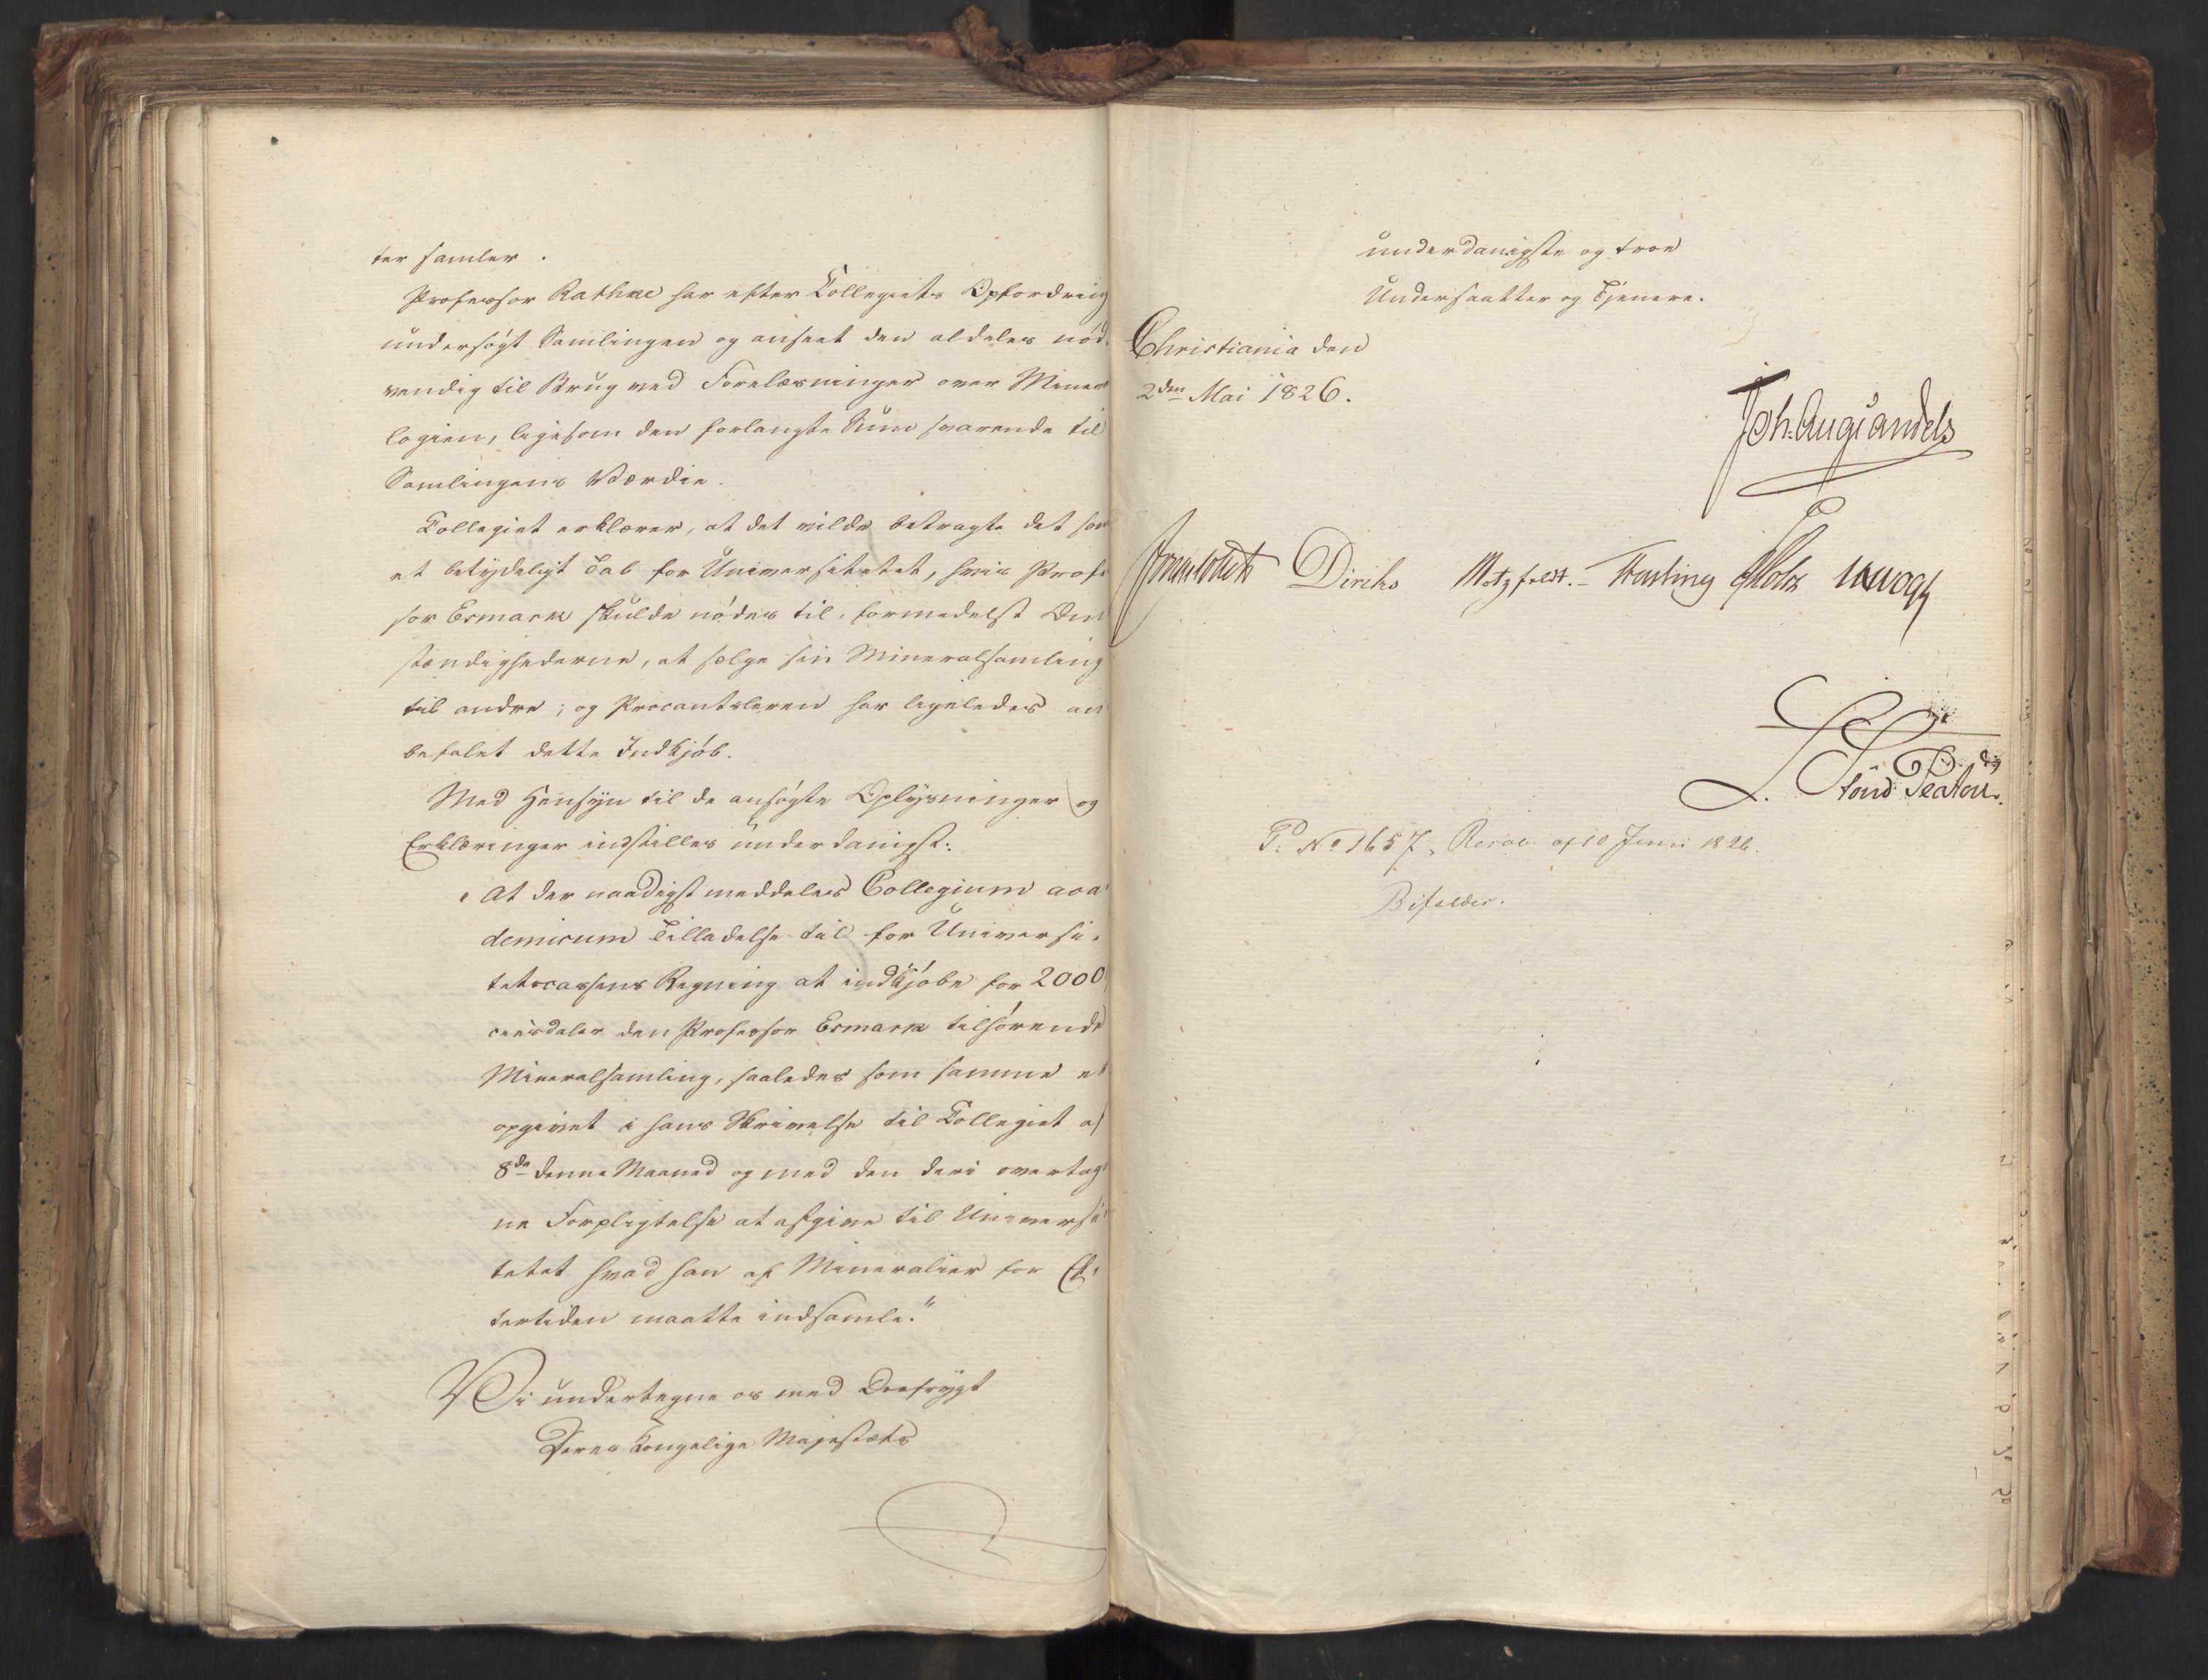 ter samler.
Professor Rathke har efter Collegiets Opfordring
undersøgt Samlingen og anseet den aldeles nød-
vendig til Brug ved Forelæsninger over Minera
logien, ligesom den forlangte Sum svarende til
Samlingens Værdie.
Collegiet erklærer, at det vilde betragte det som
et betydeligt Tab for Universitetet, hvis Profes
sor Esmark skulde nødes til, formedelst Om
stændighederne, at sælge sin Mineralsamling
til andre; og Procantsleren har ligeledes an
befalet dette Indkjøb.
Med Hensyn til de ansøgte Oplysninger og
Erklæringer indstilles underdanigst:
"At der naadigst meddeles Collegium aca
demicum Tilladelse til for Universi-
tetscassens Regning at indkjøbe for 2000
Speciesdaler den Professor Esmark tilhørende
Mineralsamling, saaledes som samme er
opgivet i hans Skrivelse til Collegiet af
8de denne Maaned og med den deri overtag
ne Forpligtelse at afgive til Universi
tetet hvad han af Mineralier for Ef-
tertiden maatte indsamle."
Vi undertegne os med Ærefrygt
Deres Kongelige Majestæts
underdanigste og troe
Undersaatter og Tjenere.
Christiania den
2den Mai 1826.
Joh. Aug. Sandels
Diriks Motzfeldt. Fasting Holst
P. No 1657, Resol. af 10 Juni 1826.
Bifaldes.